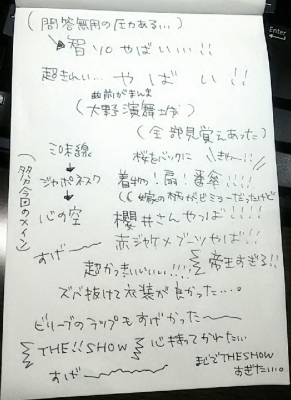 (問答無用の圧力ある…)
智ソロやばいいい!!
超きれい… やばい!!
出前がまんま
(大野演舞場)
(全部見覚えあった)
三味線
桜をバックに きゃー!!
ジャポネスク
着物!扇!番傘!!!!
((嫁の柄がビミョーだったけど
心の空
櫻井さんやっば!!!!
赤ジャケ×ブーツやば!!
(多分今回のメイン)
すげ〜
帝王すぎる!!
超かっきいいいい!!!!
ズバ抜けて衣装が良かった…。
ビリーブのラップもすげかった〜
THE!!SHOW
心持ってかれたい
すげ〜
まじでTHESHOW
すぎたい。
Enter